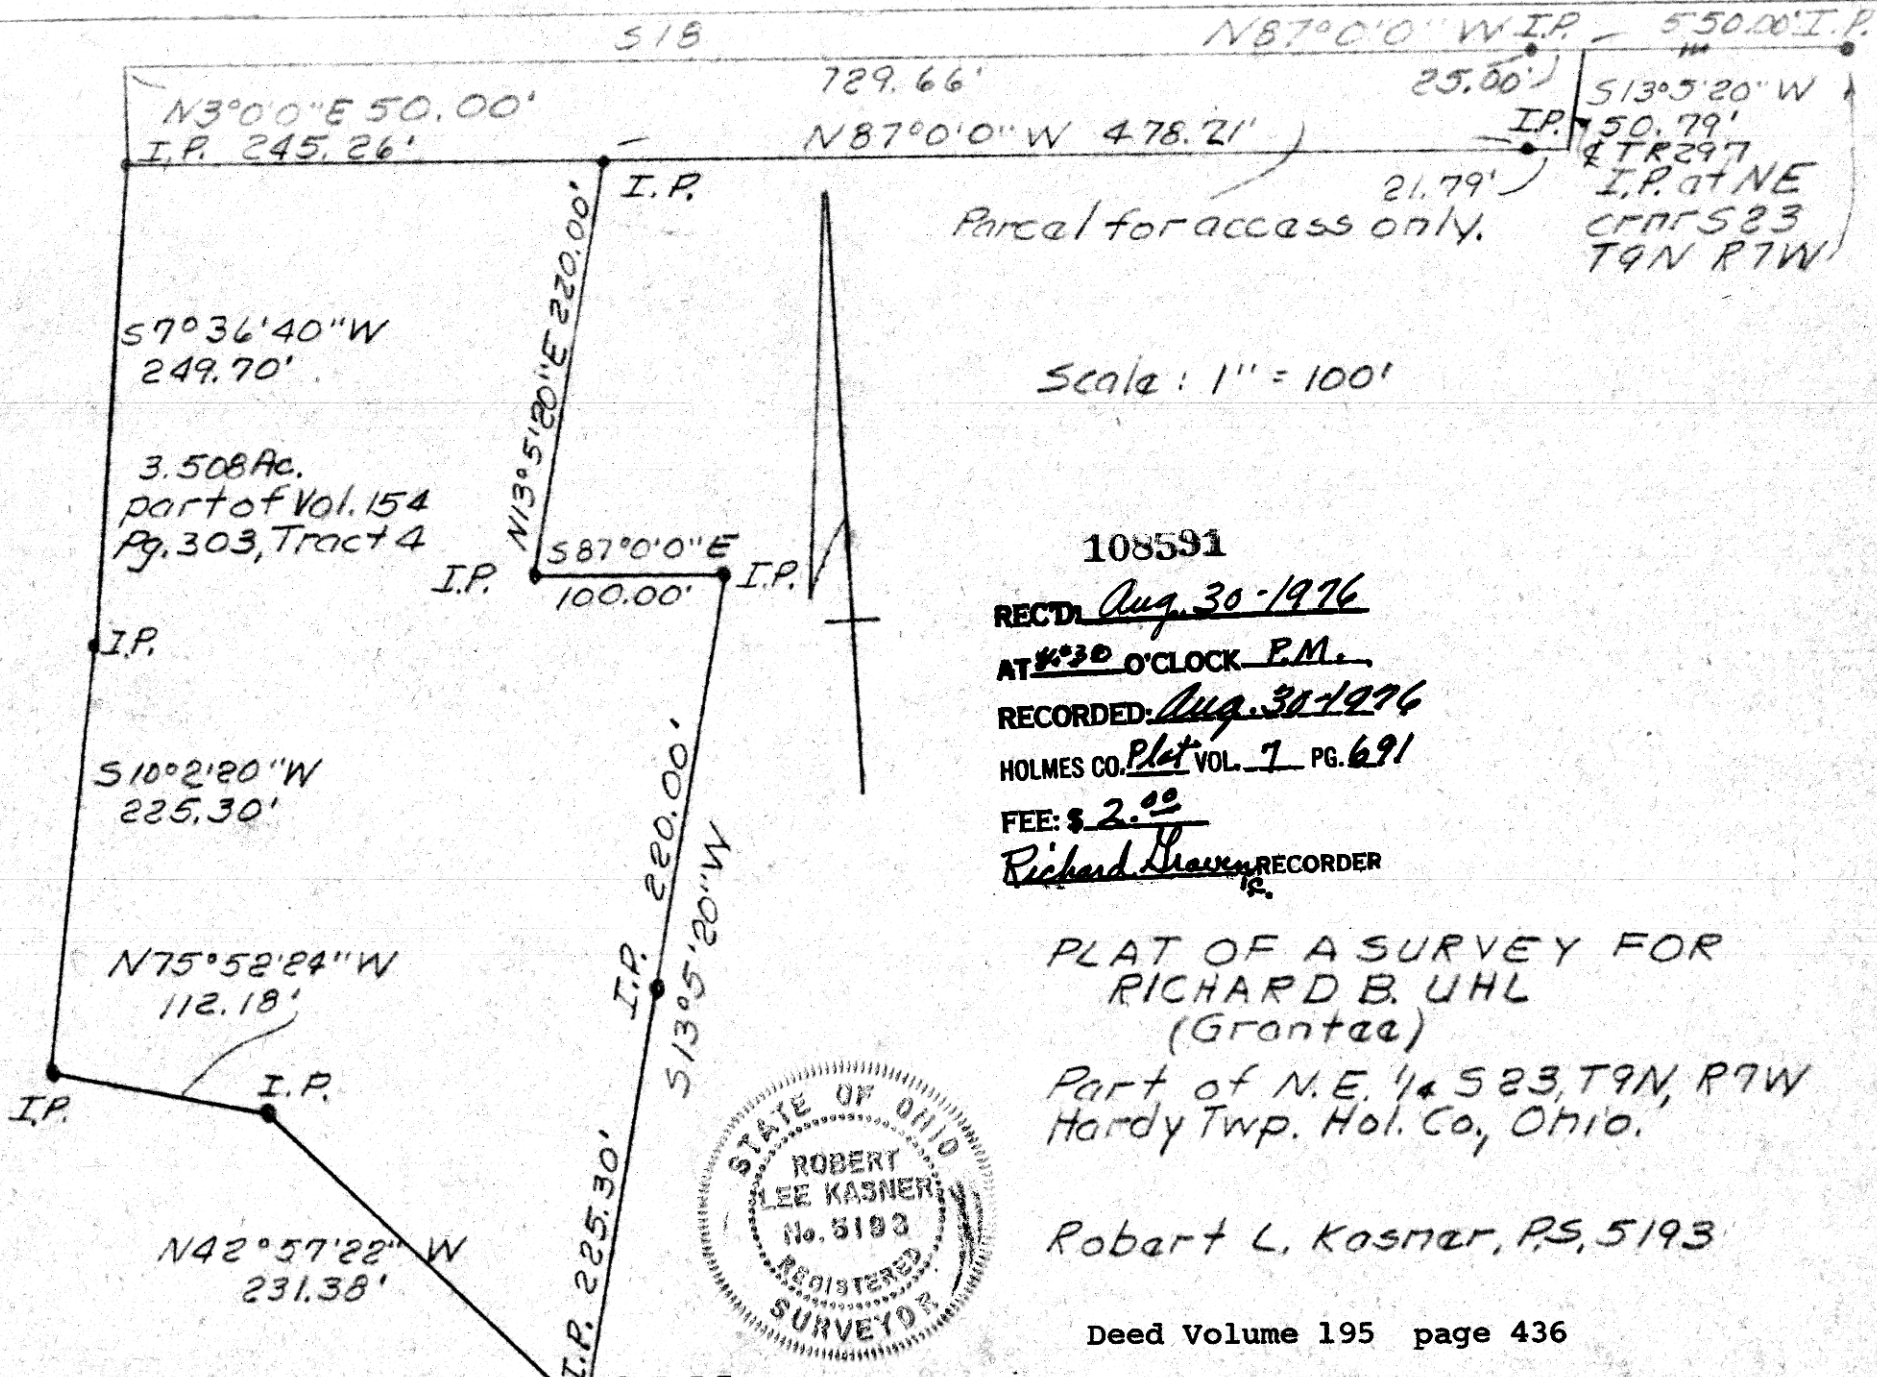 S18
N87°0'0" W I.P. 550.00' I.P.
729.66'
25.00'
N3°0'0"E 50.00'
S13°5'20" W
50.79'
I.P. 245.26'
N87°0'0" W 478.21'
I.P.
℄ TR297
I.P.
21.79'
I.P. at NE
crnr S23
T9N R7W
Parcel for access only.
N13°5'20"E 220.00'
S7°36'40"W
249.70'
Scale: 1" = 100'
3.508 Ac.
part of Vol. 154
Pg. 303, Tract 4
S87°0'0"E
I.P.
I.P.
100.00'
108591
REC'D: Aug. 30-1976
AT 4:30 O'CLOCK P.M.
RECORDED: Aug. 30-1976
HOLMES CO. Plat VOL. 7 PG. 691
FEE: $ 2.00
Richard Graven RECORDER
I.P.
S10°2'20"W
225.30'
220.00'
S13°5'20"W
I.P.
N75°52'24"W
112.18'
I.P.
I.P.
PLAT OF A SURVEY FOR
RICHARD B. UHL
(Grantee)
Part of N.E. 1/4 S23, T9N, R7W
Hardy Twp. Hol. Co., Ohio.
STATE OF OHIO
ROBERT
LEE KASNER
No. 5193
REGISTERED
SURVEYOR
N42°57'22" W
231.38'
I.P. 225.30'
Robert L. Kasner, P.S. 5193
Deed Volume 195 page 436